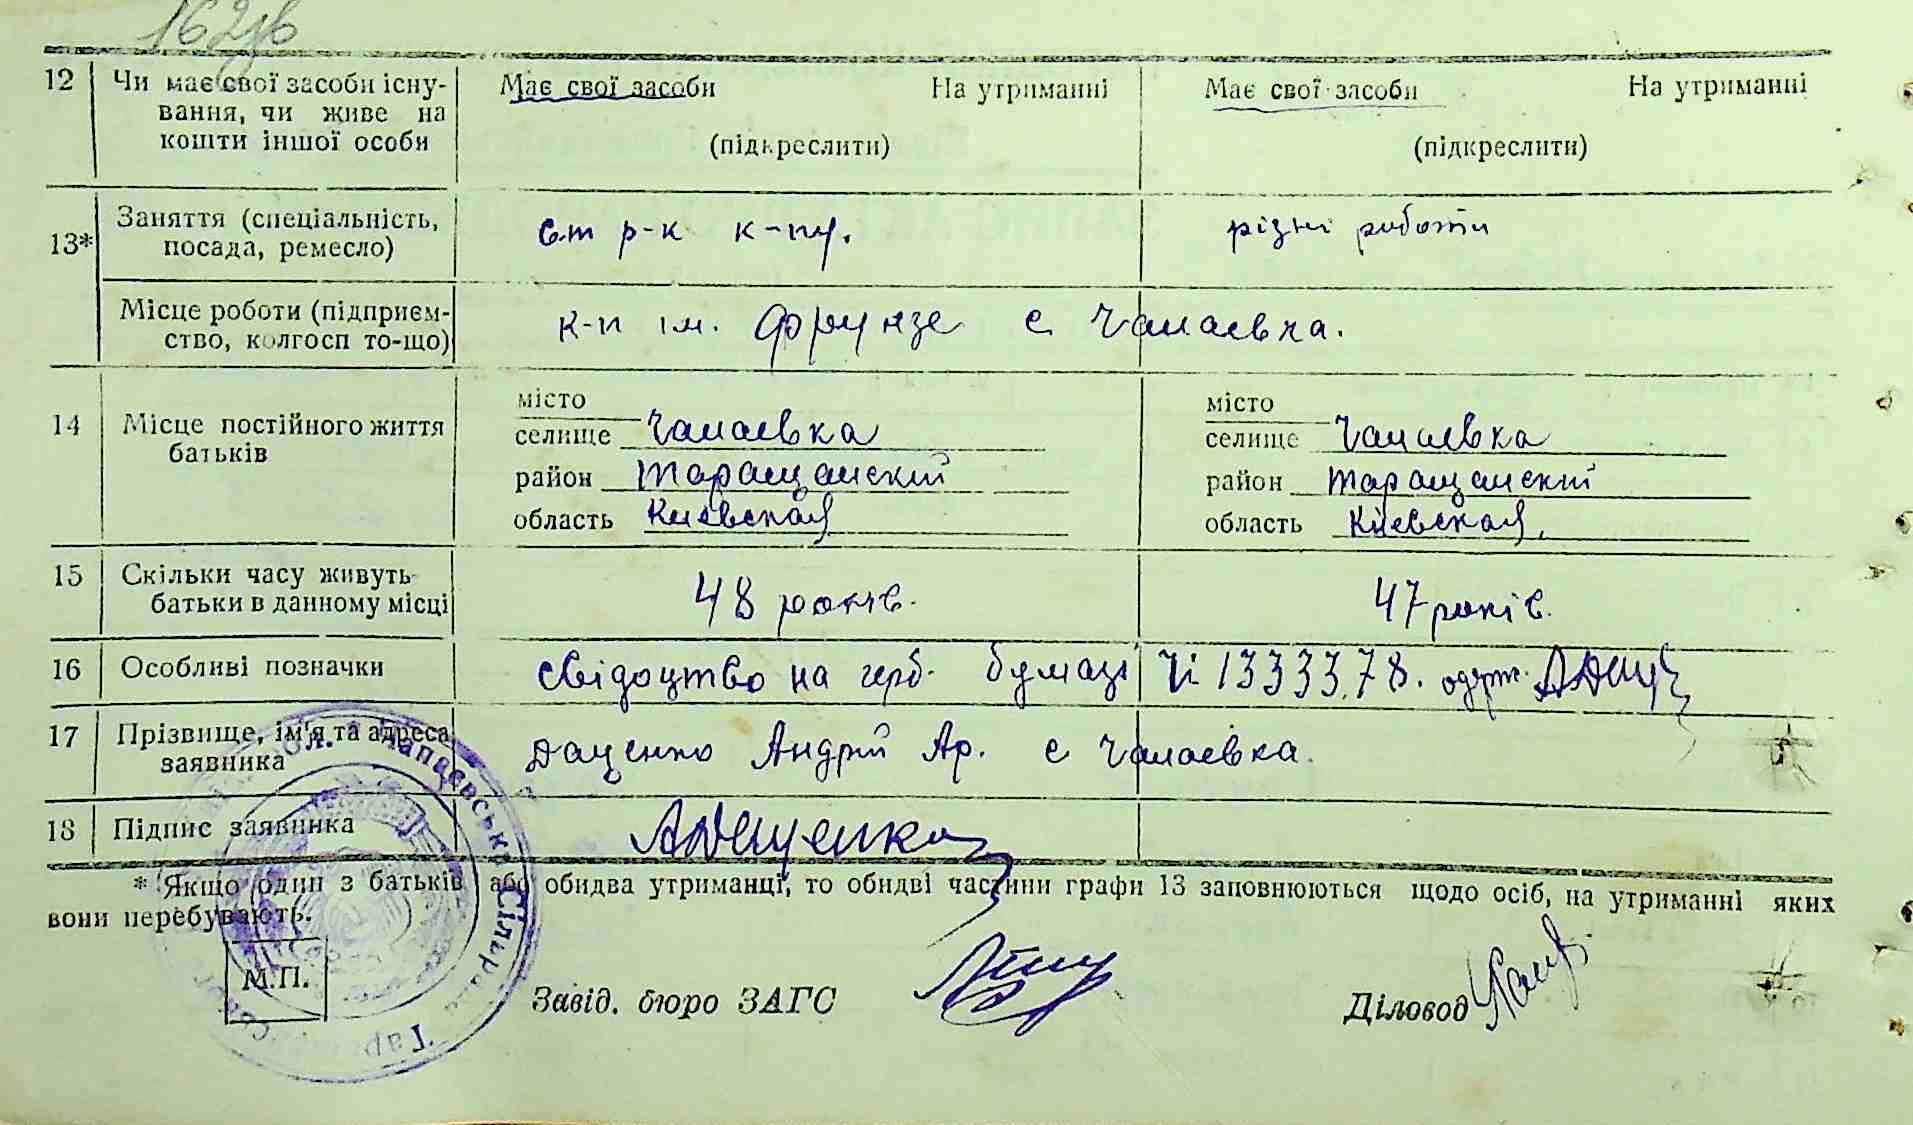 162зв
12 Чи має свої засоби існу- Має свої засоби На утриманні Має свої засоби На утриманні
вання, чи живе на
кошти іншої особи (підкреслити) (підкреслити)
13* Заняття (спеціальність, ст р-к к-пу. різні роботи
посада, ремесло)
Місце роботи (підприєм- к-п ім. Фрунзе с Чапаевка.
ство, колгосп то-що)
14 Місце постійного життя місто місто
батьків селище Чапаевка селище Чапаевка
район Таращанский район Таращанский
область Киевская область Киевская.
15 Скільки часу живуть 48 років. 47 років.
батьки в данному місці
16 Особливі позначки свідоцтво на герб. бумазі 133378. одерж.
17 Прізвище, ім'я та адреса Даценко Андрій Ар. с Чапаевка.
заявника
18 Підпис заявника
* Якщо один з батьків або обидва утриманці, то обидві частини графи 13 заповнюються щодо осіб, на утриманні яких
вони перебувають.
М.П.
Завід. бюро ЗАГС Діловод
Чапаєвська Сільрада